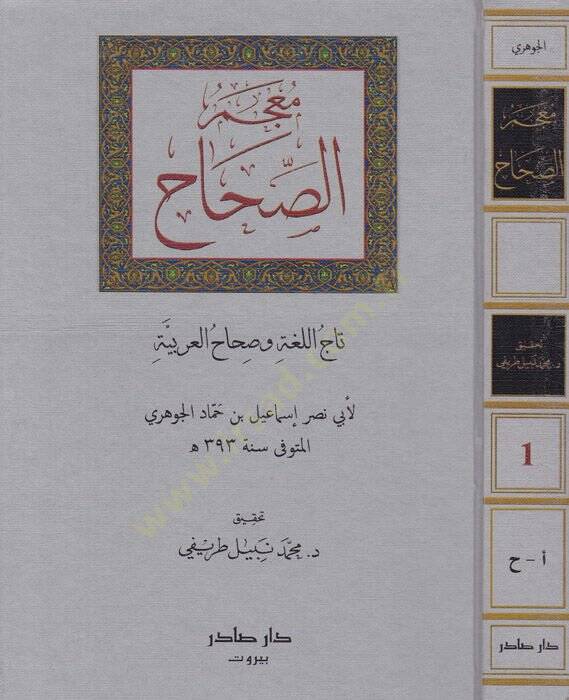 مُعْجَمُ
الصِّحَاحُ
تاجُ اللغةِ وصِحاحُ العربيَّةِ
لأبي نصر إسماعيل بن حَمّاد الجوهري
المتوفى سنة ٣٩٣ ﻫ
تحقيق
د. محمّد نبيل طريفي
دار صادر
بيروت
الجوهري
مُعْجَمُ
الصِّحَاحُ
تحقيق
د. محمّد نبيل طريفي
1
أ - ح
دار صادر